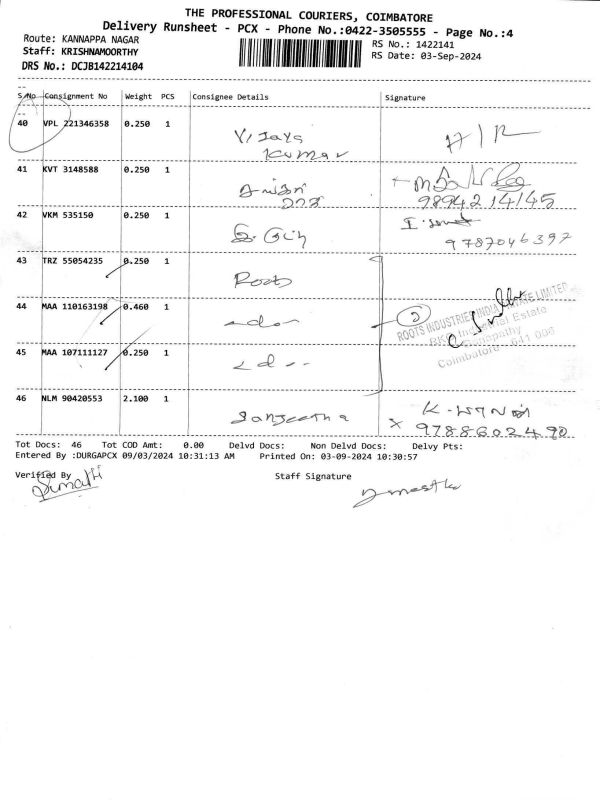 THE PROFESSIONAL COURIERS, COIMBATORE
Delivery Runsheet - PCX - Phone No.:0422-3505555 - Page No.:4
Route: KANNAPPA NAGAR
RS No.: 1422141
Staff: KRISHNAMOORTHY
RS Date: 03-Sep-2024
DRS No.: DCJB142214104
S/No Consignment No Weight PCS Consignee Details Signature
40 VPL 221346358 0.250 1 Vijaya
Kumar
41 KVT 3148588 0.250 1
9894214145
42 VKM 535150 0.250 1
9787046397
43 TRZ 55054235 0.250 1 Roots
44 MAA 110163198 0.460 1
ROOTS INDUSTRIES INDIA PRIVATE LIMITED
RKG Industrial Estate
Ganapathy
Coimbatore - 641 006
45 MAA 107111127 0.250 1
46 NLM 90420553 2.100 1 Sangeetha
9788602490
Tot Docs: 46 Tot COD Amt: 0.00 Delvd Docs: Non Delvd Docs: Delvy Pts:
Entered By :DURGAPCX 09/03/2024 10:31:13 AM Printed On: 03-09-2024 10:30:57
Verified By Staff Signature